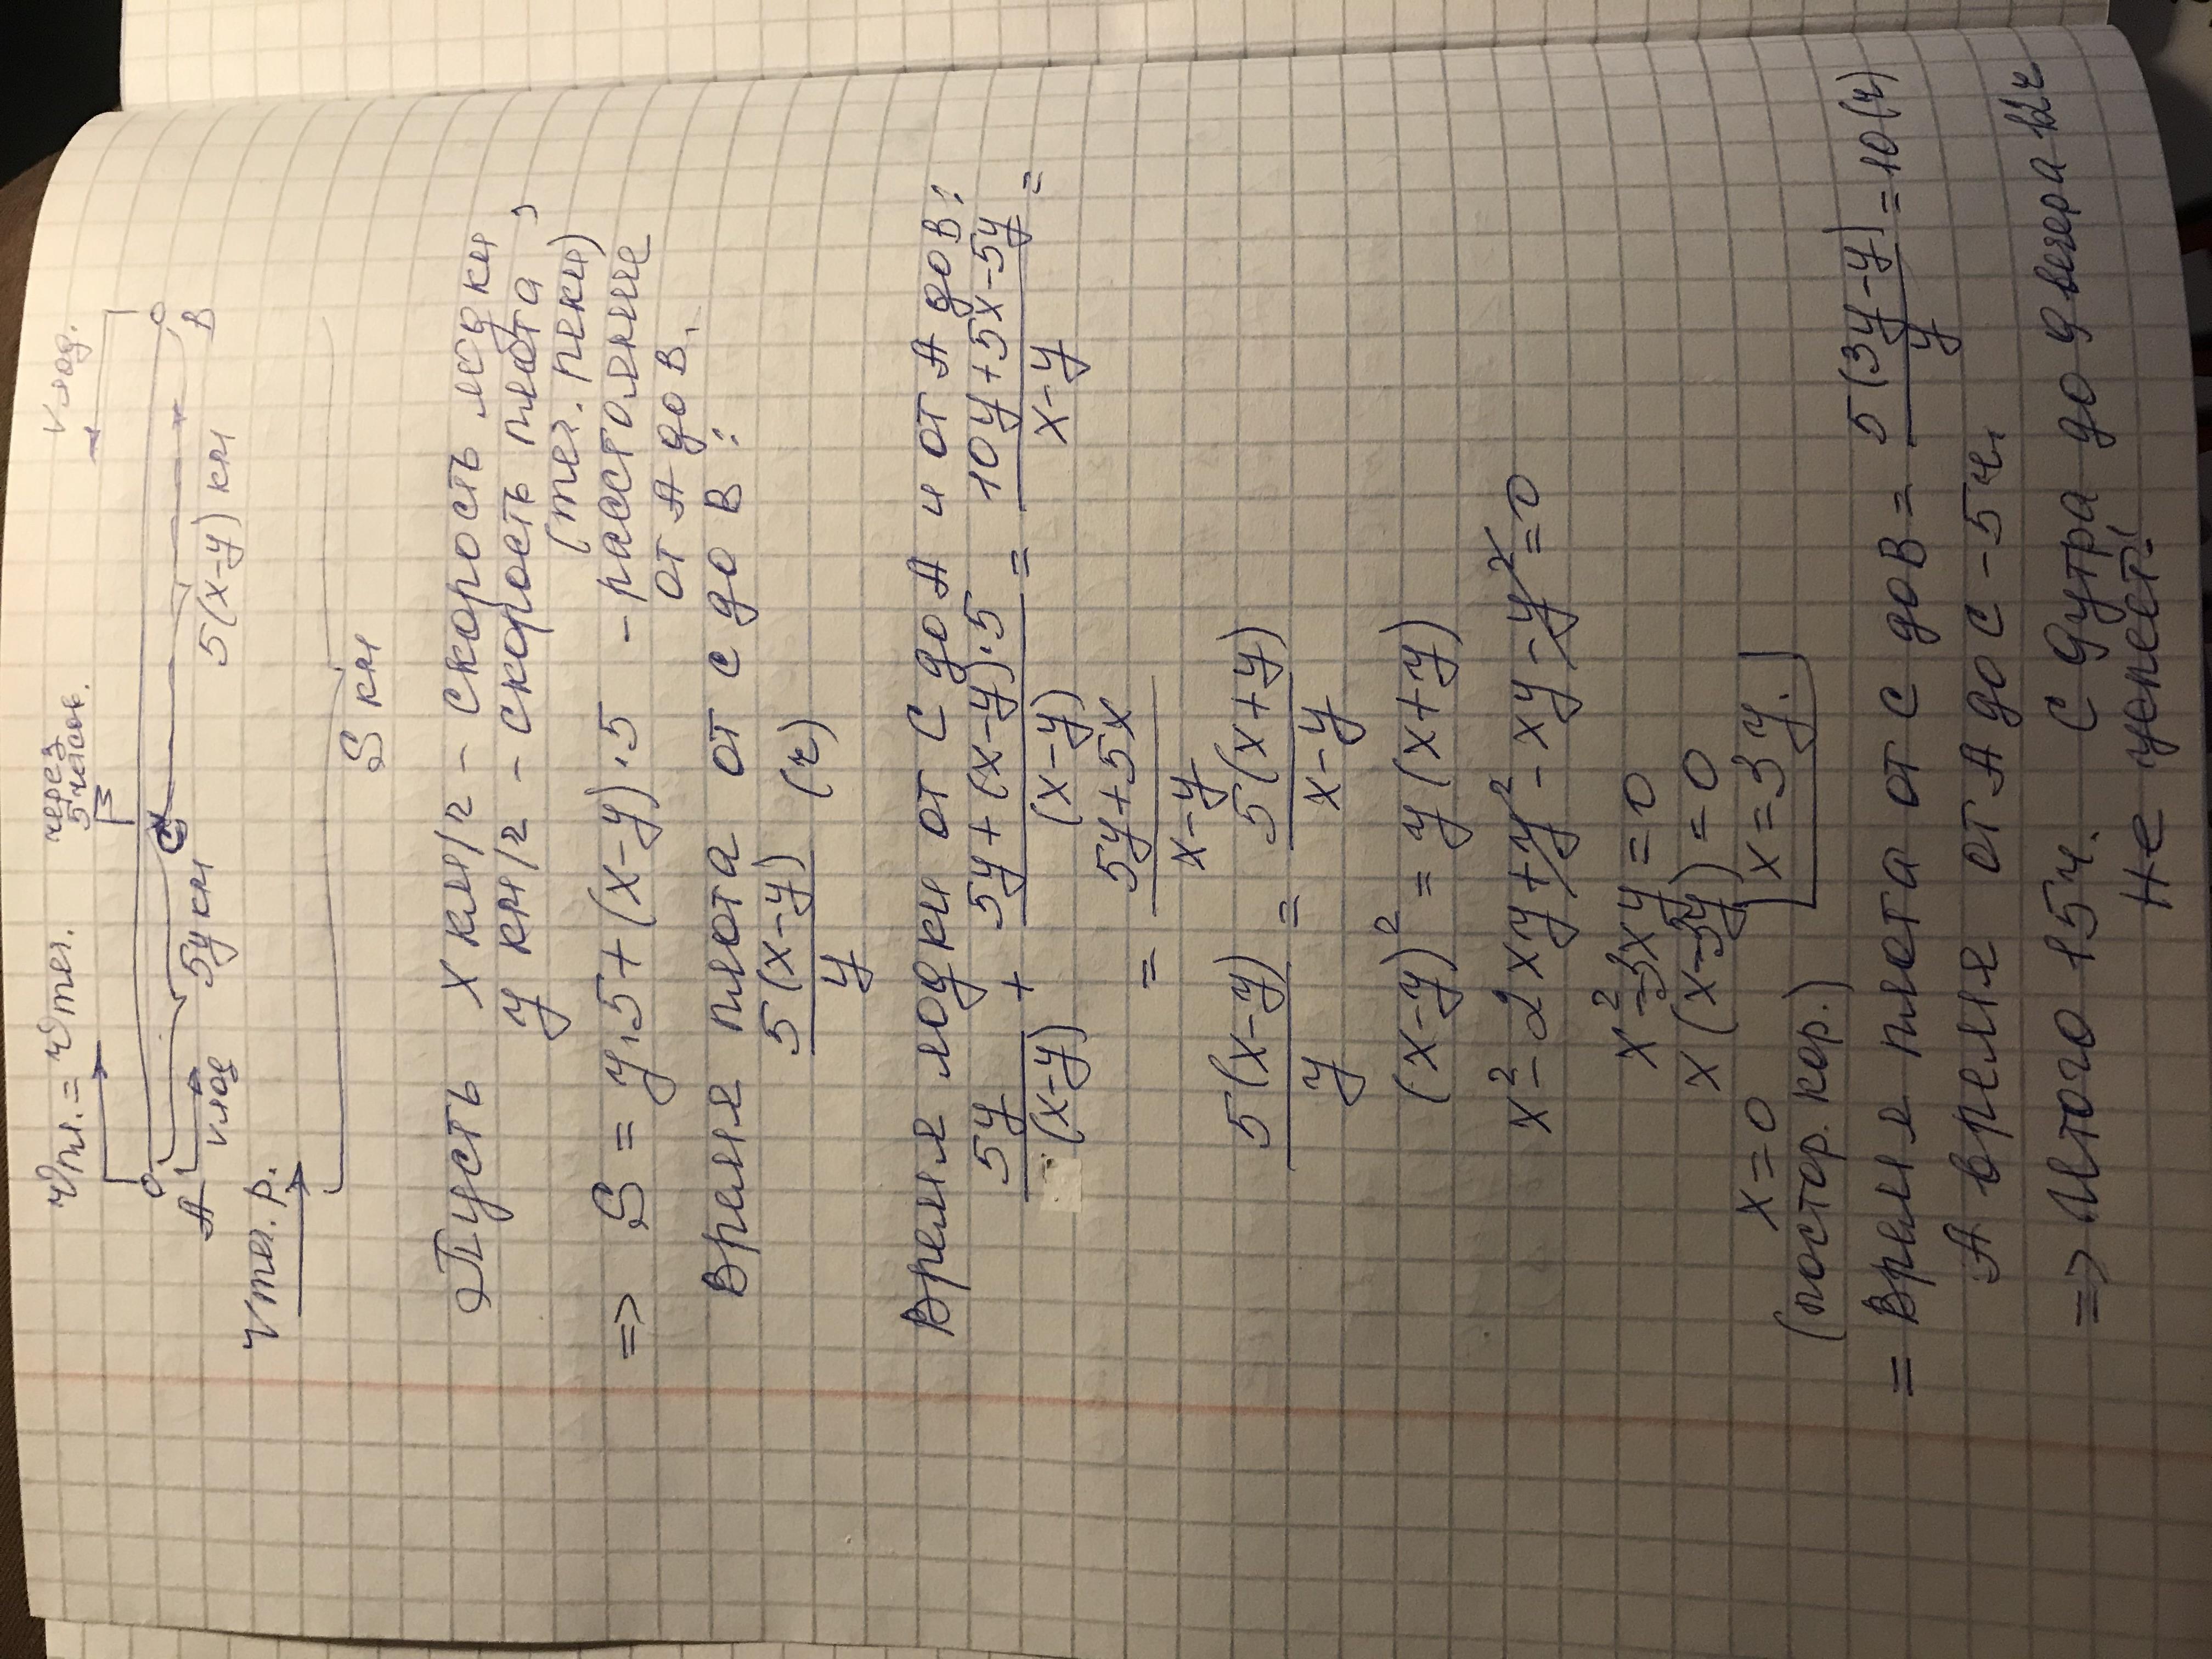 Vпл. = Vтеч.
через 5 часов.
Vлод.
A
C
B
5y км
5(x-y) км
Vлод
Vтеч. р.
S км
Пусть x км/ч - скорость лодки
y км/ч - скорость плота,
(теч. реки)
=> S = y·5+(x-y)·5 - расстояние
от A до B.
Время плота от C до B:
5(x-y)/y (ч)
Время лодки от C до A и от A до B:
5y/(x-y) + (5y+(x-y)·5)/(x-y) = (10y+5x-5y)/(x-y) =
= (5y+5x)/(x-y)
5(x-y)/y = 5(x+y)/(x-y)
(x-y)² = y(x+y)
x²-2xy+y²-xy-y²=0
x²-3xy=0
x(x-3y)=0
x=0 x=3y.
(постор. кор.)
= Время плота от C до B = 5(3y-y)/y = 10(ч)
А время от A до C - 5ч.
=> Итого 15ч. С 9 утра до 9 вечера 12ч
Не успеет!